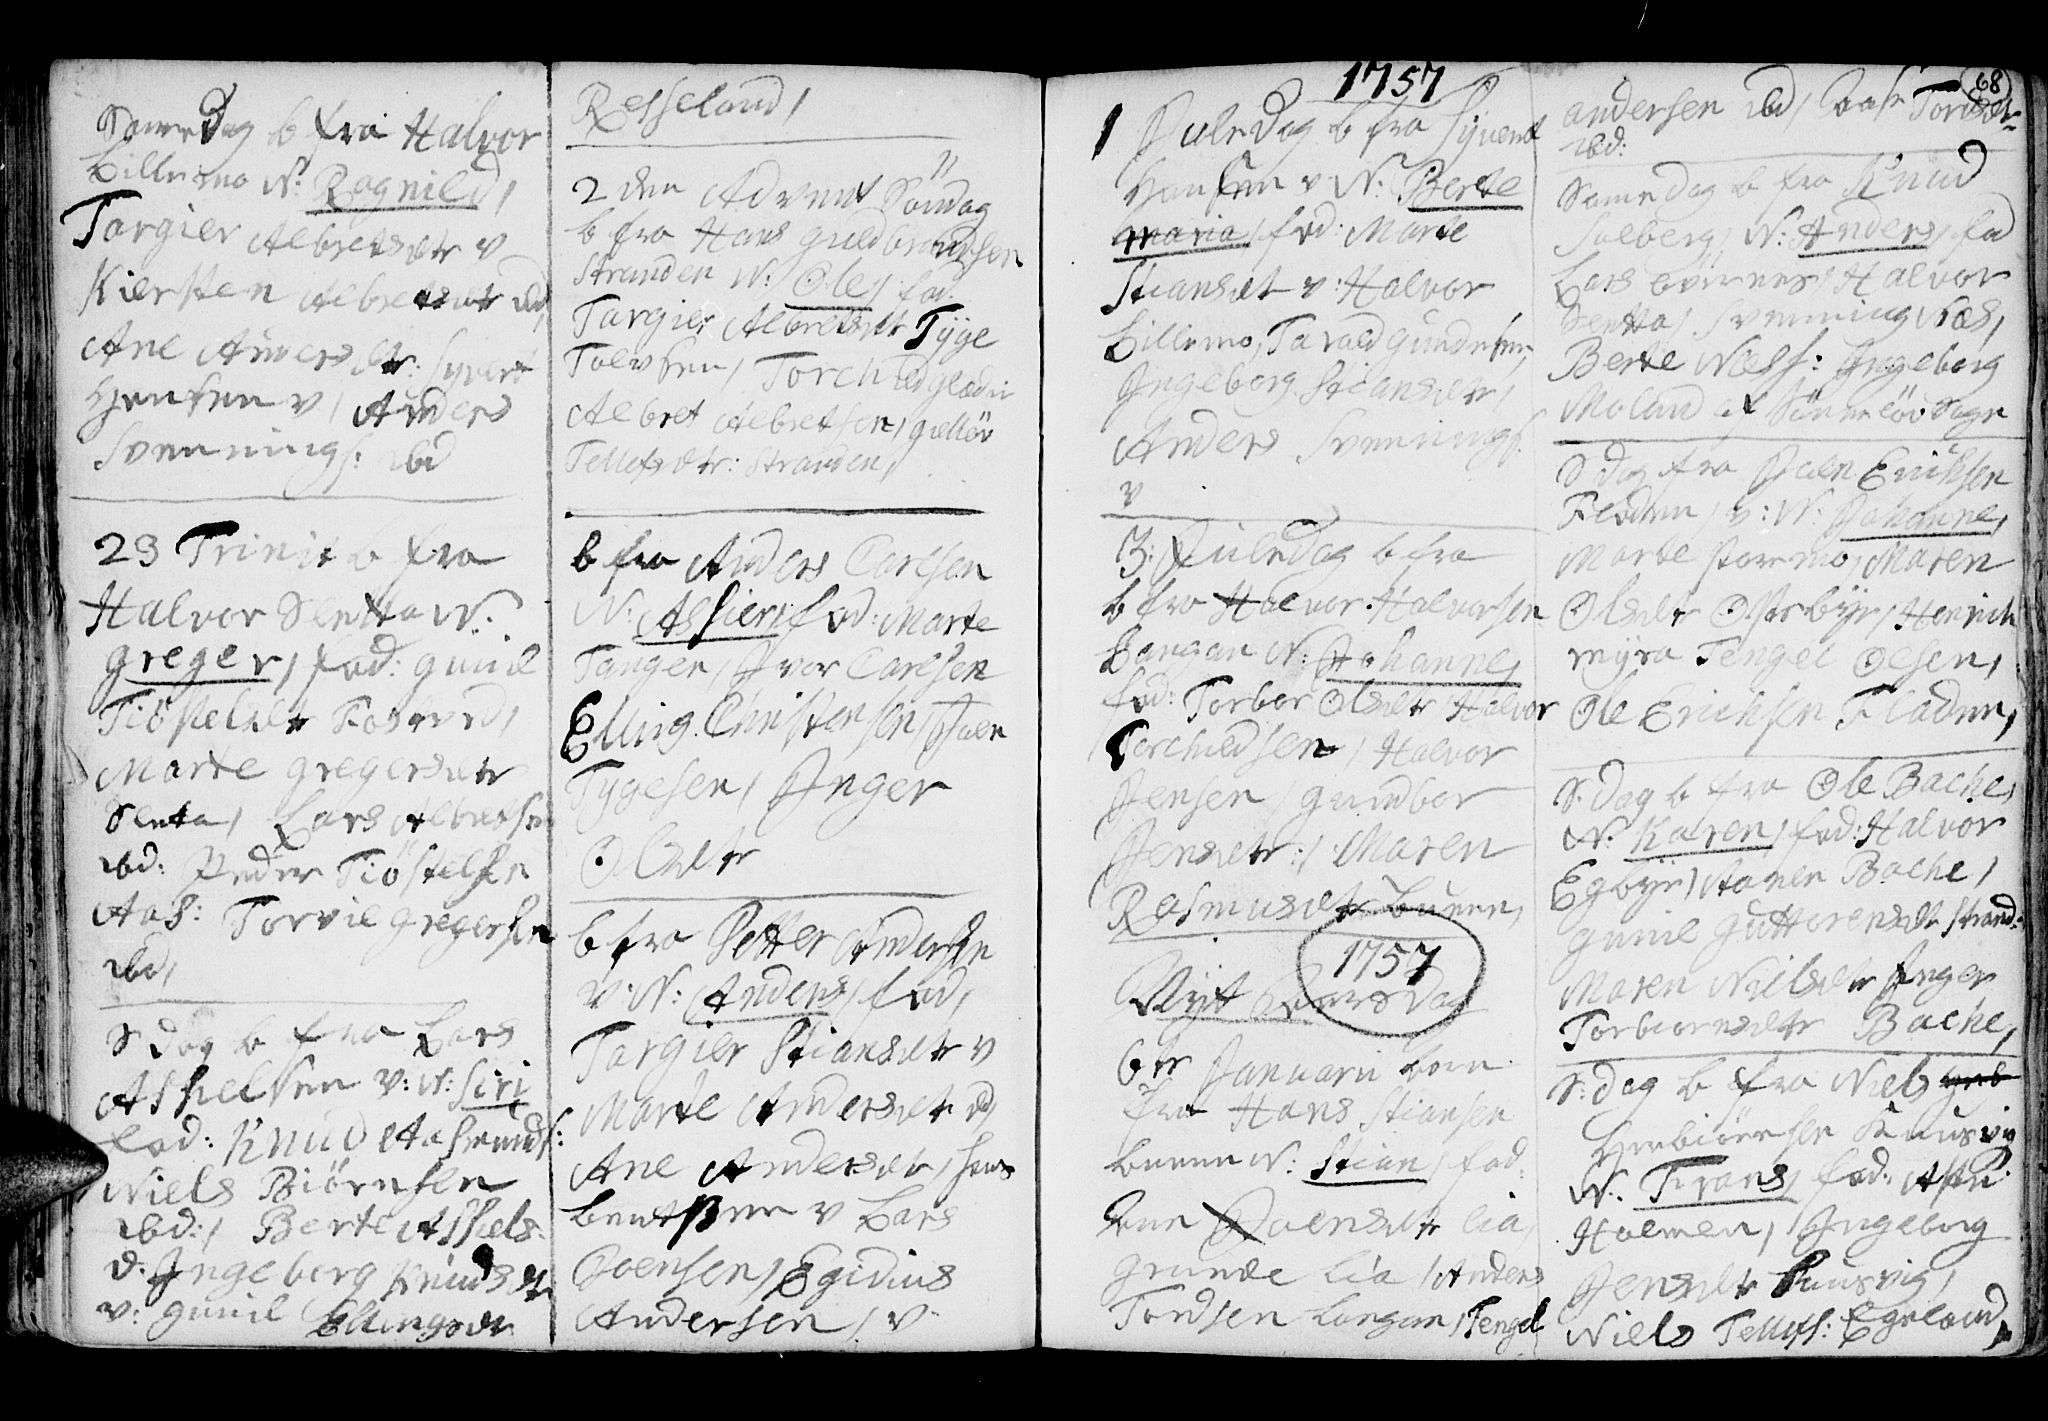 Same Dag b fra Halvor
Lillemo N: Ragnild/
Targier Albretsdtr v
Kiersten Albretsdtr ibd,
Ane Andersdtr: Syvert
Hansen v/ Anders
Svennings: ibd
23 Trinit b fra
Halvor Sletta N.
greger/ fad: gunil
Tiöstelsdtr Fosered,
Marte gregersdtr
Sletta/ Lars Albretsen
ibd: Peder Tiöstelsen
Aas: Torvil gregersen
ibd,
S dag b fra Lars
Asfielsen v: N: Siri
fad: Knud Aasmunds:
Niels Biörnsen
ibd:/ Berte Asfiels:
d: Ingeborg Knudsdtr
v: gunil Ellingsdtr
Resseland/
2 den Advent Söndag
b fra Hans guldbrandsen
Stranden N: Ole/ fad.
Targier Albretsdtr Tyge
Tolvsen/ Torchild gladin
Albret Albretsen/ gullöv
Tellefsdtr: Stranden/
b fra Anders Carlsen
N: Asfiern fad: Marte
Tangen/ Ivor Carlsen
Elling Christensen/ Joen
Tygesen/ Inger
Olsdtr
b fra Petter Andersen
v: N: Anders/ fad,
Targier Stiansdtr v
Marte Andersdtr ibd,
Ane Andersdtr/ Hans
bentsen v Lars
Joensen/ Egidius
Andersen/ v
1757
1 Juledag b fra Syvert
Hansen v N: Berte
Maria/ fad: Marte
Stiansdtr v: Halvor
Lillemo, Tarald gundersen
Ingeborg Stiansdtr/
Anders Svennings:
v
3: Juledag b fra
b fra Halvor Halvorsen
Langan N: Johanne,
fad: Torbor Olsdtr Halvor
Torchildsen/ Halvor
Jensen/ gundbor
Jensdtr:/ Maren
Rasmusdtr buene,
1757
Nyt Aarsdag
6te Januarii bem
fra Hans Stiansen
buene N: Stian/ fad:
Ane Joensdtr lia,
grunde lia/ Anders
Tordsen Langan/ Tengel
68
andersen ibd/ Aase Tordsdtr
ibd:
Same dag b fra Knud
Salberg/ N: Anders/ fad
Lars Övernes/ Halvor
Sletta/ Svenning Næs,
Berte Nels: Ingeborg
Moland af Sönneløv Sogn
S dag fra Joen Erichsen
Fladen/ v: N: Johanne,
Marte Storemo/ Maren
Olsdtr Osterbye/ Henrich
myra Tengel Olsen,
Ole Erichsen Fladen,
S. dag b fra Ole Bache,
N: Karen/ fad: Halvor
Egbye/ Aanen Bache/
gunil guttorensdtr Strand:
Maren Nielsdtr Inger
Torbiornsdtr Bache,
S. dag b fra Niels
Herbiörnsen Knusvig
N: Frans/ fad: Astri
Holmen/ Ingeborg
Jensdtr Knusvig,
Niels Tellefs: Egeland,